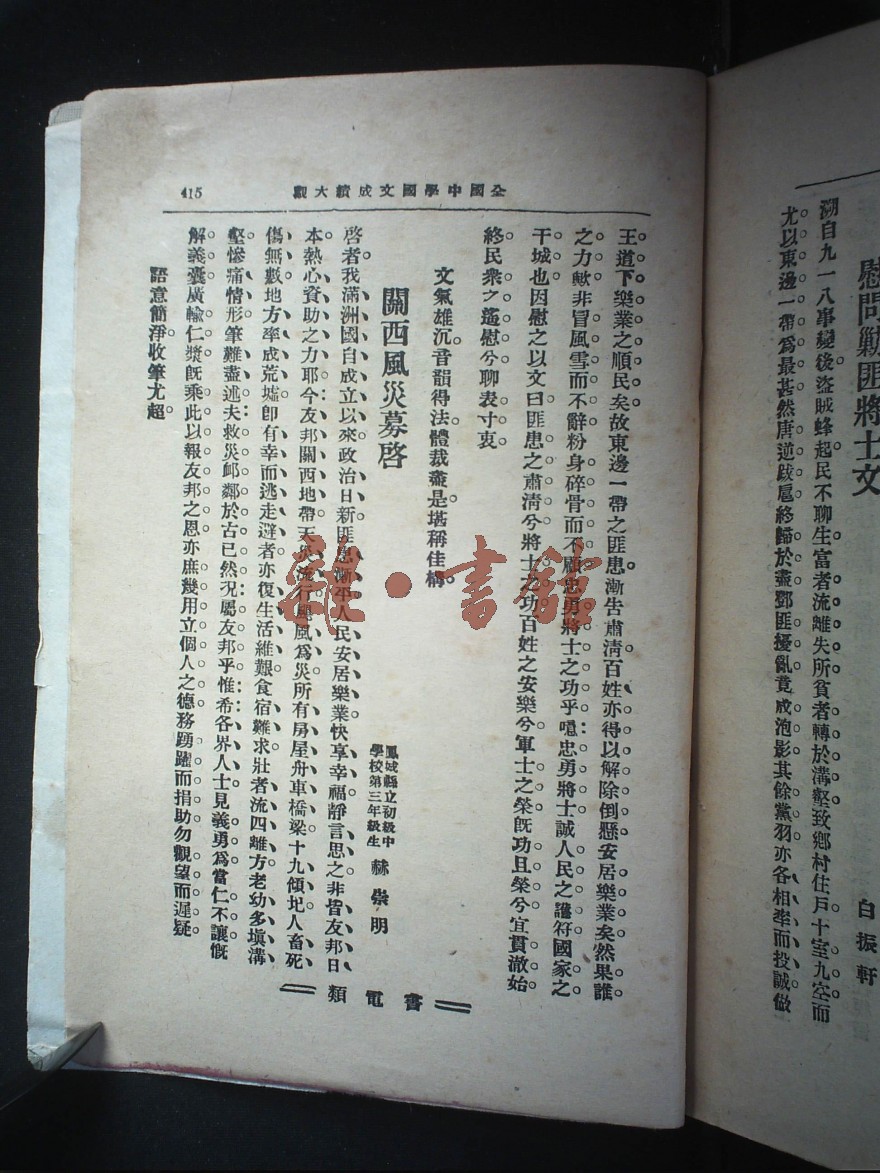 慰問勦匪將士文
白振軒
溯自九一八事變後盜賊蜂起民不聊生富者流離失所貧者轉於溝壑致鄉村住戶十室九空而
尤以東邊一帶爲最甚然唐逆跋扈終歸於盡鄧匪擾亂竟成泡影其餘黨羽亦各相率而投誠做
全國中學國文成績大觀
415
王道下樂業之順民矣故東邊一帶之匪患漸告肅淸百姓亦得以解除倒懸安居樂業矣然果誰
之力歟非冒風雪而不辭粉身碎骨而不顧忠勇將士之功乎噫忠勇將士誠人民之護符國家之
干城也因慰之以文曰匪患之肅淸兮將士之功百姓之安樂兮軍士之榮旣功且榮兮宜貫澈始
終民衆之遙慰兮聊表寸衷
文氣雄沉音韻得法體裁盡是堪稱佳構
關西風災募啓
鳳城縣立初級中
學校第三年級生
赫崇明
啓者我滿洲國自成立以來政治日新匪患漸平人民安居樂業快享幸福靜言思之非皆友邦日
本熱心資助之力耶今友邦關西地帶天災流行颶風爲災所有房屋舟車橋梁十九傾圯人畜死
傷無數地方率成荒墟卽有幸而逃走避者亦復生活維艱食宿難求壯者流四離方老幼多塡溝
壑慘痛情形筆難盡述夫救災卹鄰於古已然況屬友邦乎惟希各界人士見義勇爲當仁不讓慨
解義囊廣輸仁漿旣乘此以報友邦之恩亦庶幾用立個人之德務踴躍而捐助勿觀望而遲疑
語意簡淨收筆尤超
書電類
龍·書館